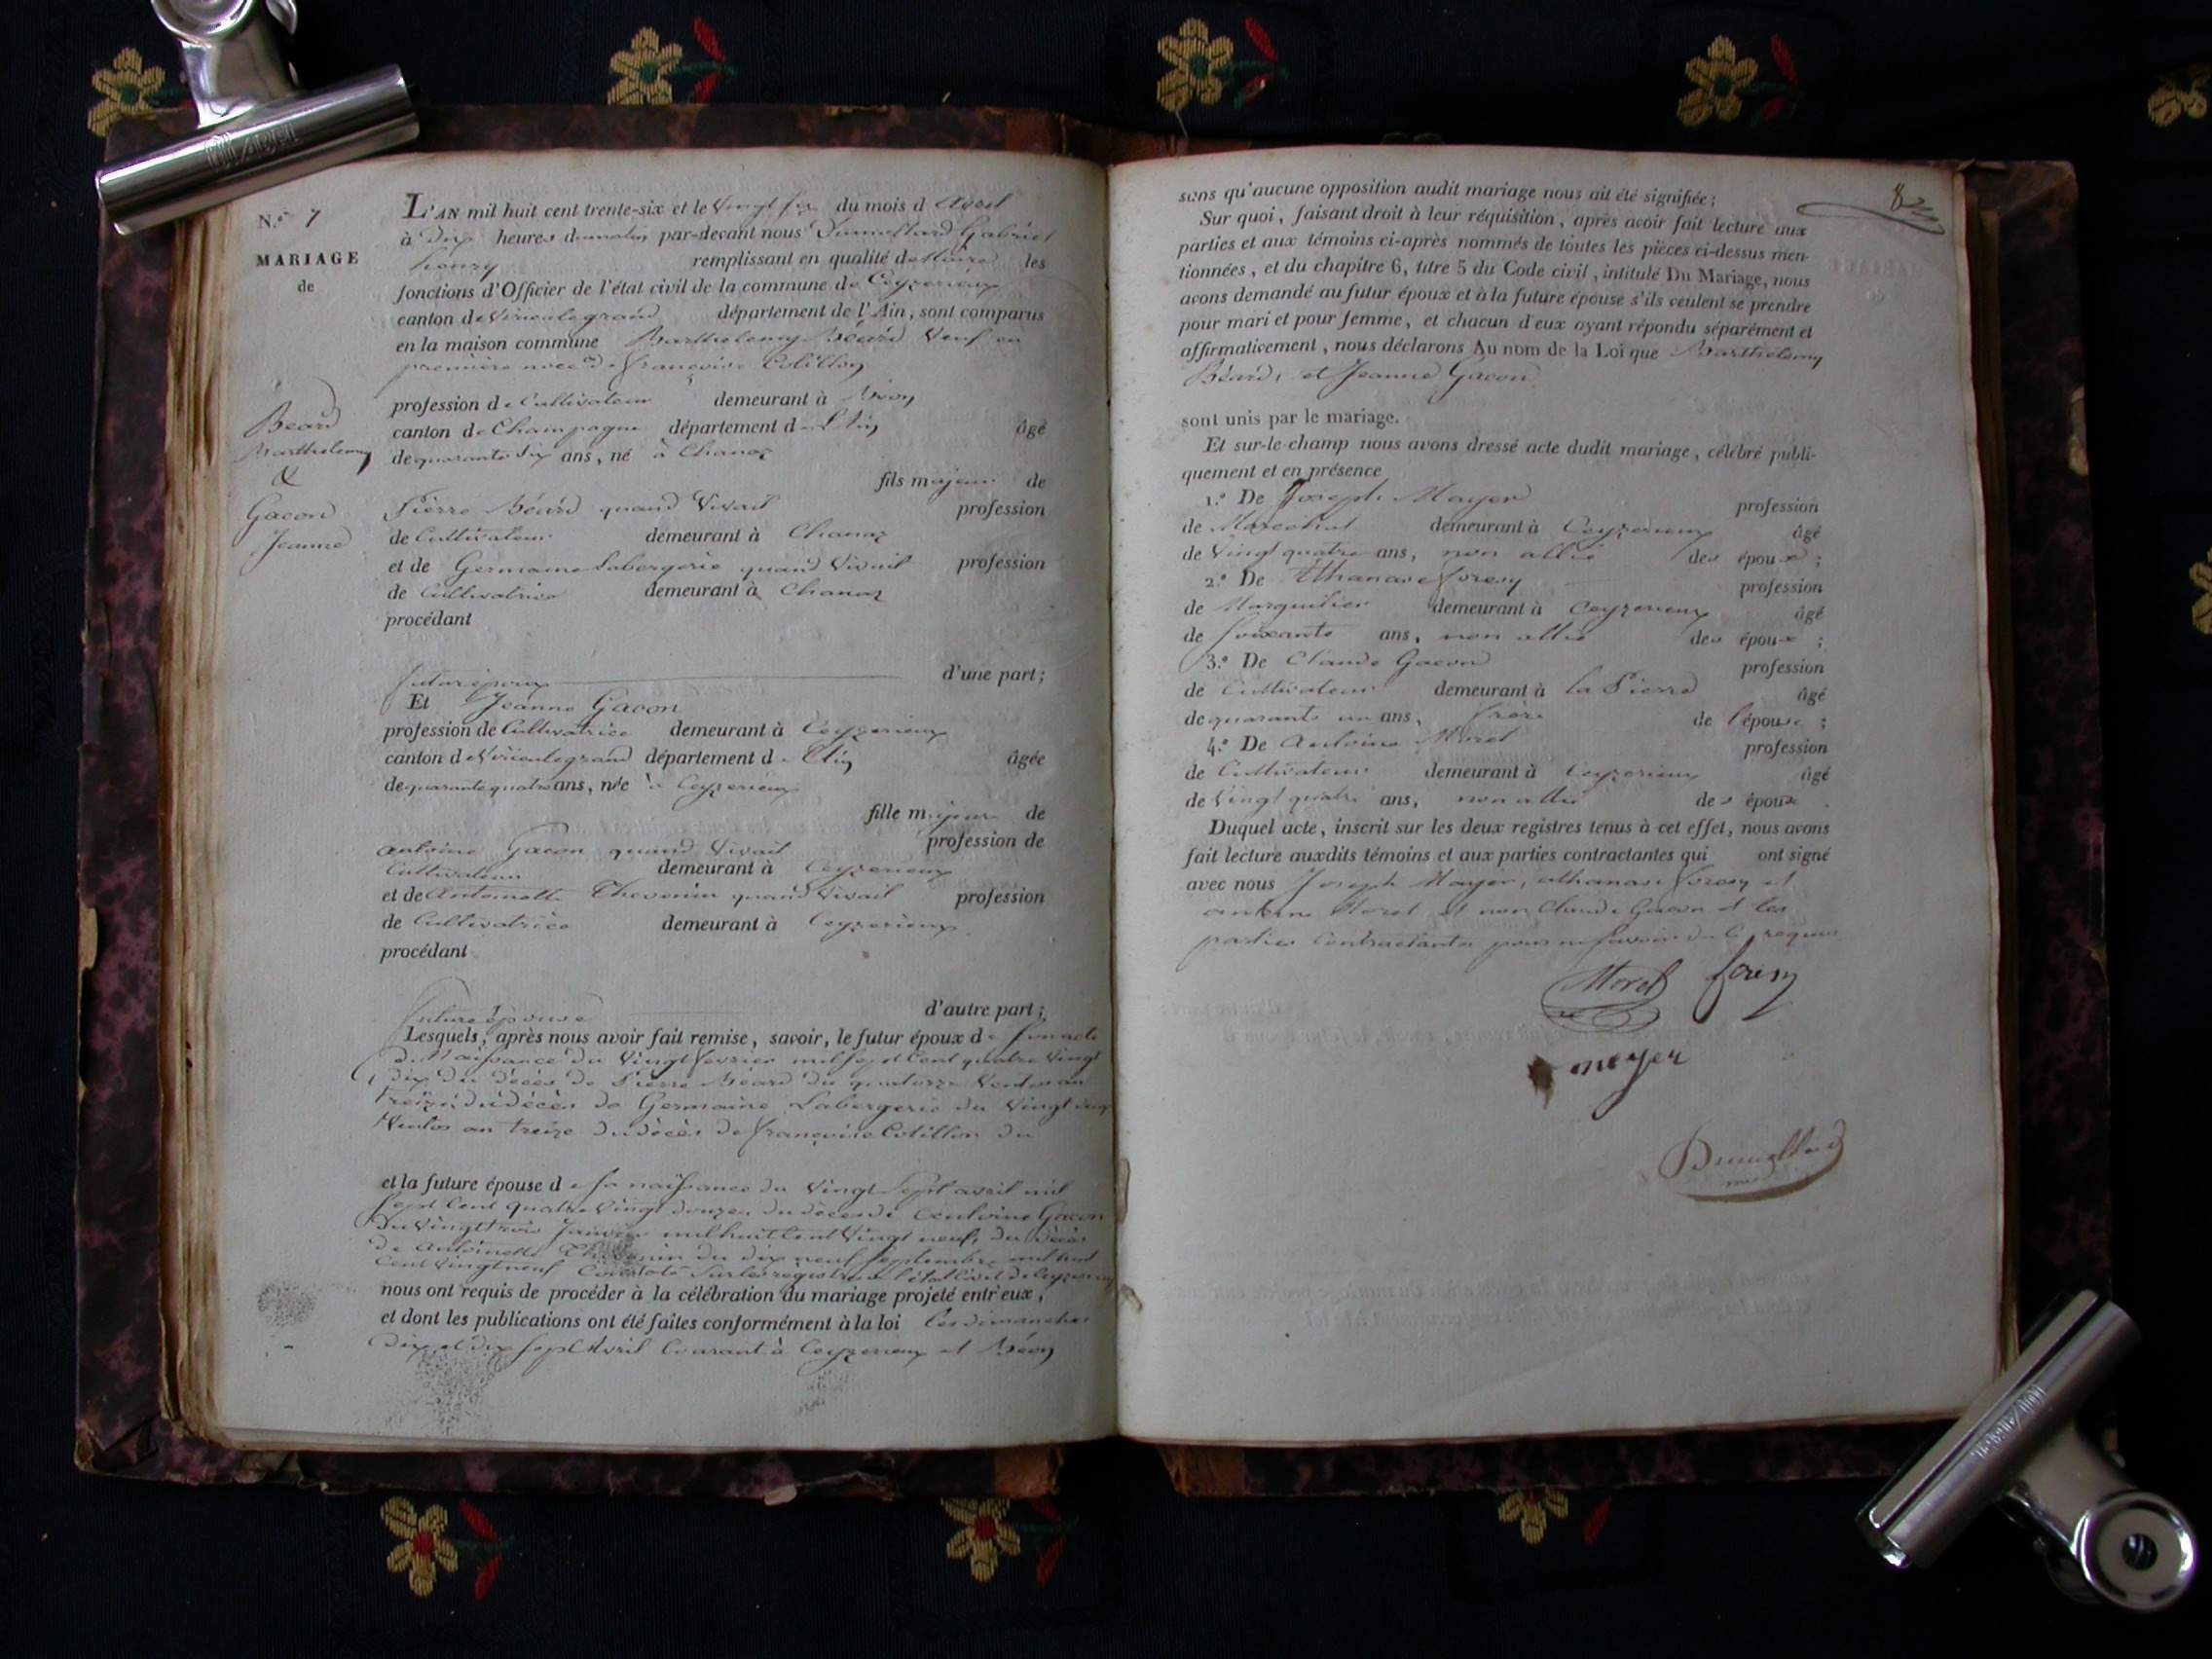 N.º 7
MARIAGE
de
Béard
Barthelemy
&
Gacon
Jeanne
L'AN mil huit cent trente-six et le vingt six du mois d avril
à Dix heures du matin par-devant nous Dumollard Gabriel
henry remplissant en qualité de Maire les
fonctions d'Officier de l'état civil de la commune de Ceyzerieux
canton de Virieulegrand département de l'Ain, sont comparus
en la maison commune Barthelemy Béard Veuf en
première noce de françoise Cotillon
profession de Cultivateur demeurant à Béon
canton de Champagne département de L'Ain âgé
de quarante six ans, né à Chanaz
fils majeur de
Pierre Béard quand Vivait profession
de Cultivateur demeurant à Chanaz
et de Germaine Labergerie quand Vivait profession
de Cultivatrice demeurant à Chanaz
procédant
futur époux d'une part;
Et Jeanne Gacon
profession de Cultivatrice demeurant à Ceyzerieux
canton de Virieulegrand département de L'Ain âgée
de quarante quatre ans, née à Ceyzerieux
fille majeure de
antoine Gacon quand Vivait profession de
Cultivateur demeurant à Ceyzerieux
et de Antoinette Thevenin quand Vivait profession
de Cultivatrice demeurant à Ceyzerieux
procédant
future épouse d'autre part;
Lesquels, après nous avoir fait remise, savoir, le futur époux de son acte
de Naissance du Vingt fevrier mil sept Cent quatre Vingt
Dix du décès de Pierre Béard du quatorze Ventos an
treize; du décès de Germaine Labergerie du Vingt
Ventos an treize du décès de françoise Cotillon du
et la future épouse de sa naissance du Vingt Sept avril mil
Sept Cent quatre Vingt douze, du décès de antoine Gacon
du Vingt trois Janvier mil huit Cent Vingt neuf, du décès
de Antoinette Thevenin du dix neuf Septembre mil huit
Cent Vingt neuf Constaté sur les registres de l'état Civil de Ceyzerieux
nous ont requis de procéder à la célébration du mariage projeté entr'eux,
et dont les publications ont été faites conformément à la loi Les dimanches
Dix et dix sept Avril Courant à Ceyzerieux et Béon
8
sans qu'aucune opposition audit mariage nous ait été signifiée;
Sur quoi, faisant droit à leur réquisition, après avoir fait lecture aux
parties et aux témoins ci-après nommés de toutes les pièces ci-dessus men-
tionnées, et du chapitre 6, titre 5 du Code civil, intitulé Du Mariage, nous
avons demandé au futur époux et à la future épouse s'ils veulent se prendre
pour mari et pour femme, et chacun d'eux ayant répondu séparément et
affirmativement, nous déclarons Au nom de la Loi que Barthelemy
Béard, et Jeanne Gacon
sont unis par le mariage.
Et sur-le-champ nous avons dressé acte dudit mariage, célébré publi-
quement et en présence
1.º De Joseph Mayer profession
de Maréchal demeurant à Ceyzerieux âgé
de Vingt quatre ans, non allié des époux;
2.º De Athanase foresy profession
de Marguilier demeurant à Ceyzerieux âgé
de soixante ans, non allié des époux;
3.º De Claude Gacon profession
de Cultivateur demeurant à la Pierre âgé
de quarante un ans, frère de l'épouse;
4.º De Antoine Morel profession
de Cultivateur demeurant à Ceyzerieux âgé
de Vingt quatre ans, non allié des époux.
Duquel acte, inscrit sur les deux registres tenus à cet effet, nous avons
fait lecture auxdits témoins et aux parties contractantes qui ont signé
avec nous Joseph Mayer, athanase foresy et
antoine Morel et non Claude Gacon et les
parties Contractantes pour ne savoir de ce requis
Morel foresy
meyer
Dumollard